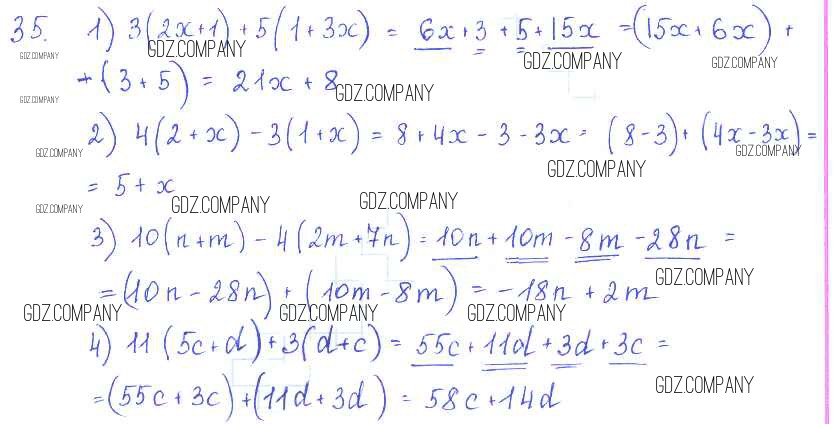 35. 1) 3(2x+1)+5(1+3x) = 6x+3+5+15x =(15x+6x)+
GDZ.COMPANY GDZ.COMPANY GDZ.COMPANY GDZ.COMPANY
+(3+5) = 21x+8
GDZ.COMPANY GDZ.COMPANY
2) 4(2+x)-3(1+x) = 8+4x-3-3x= (8-3)+(4x-3x)=
GDZ.COMPANY GDZ.COMPANY GDZ.COMPANY
= 5+x
GDZ.COMPANY GDZ.COMPANY GDZ.COMPANY
3) 10(n+m)-4(2m+7n)=10n+10m-8m-28n =
GDZ.COMPANY
=(10n-28n)+(10m-8m) = -18n+2m
GDZ.COMPANY GDZ.COMPANY GDZ.COMPANY
4) 11(5c+d)+3(d+c) = 55c+11d+3d+3c =
GDZ.COMPANY
=(55c+3c)+(11d+3d) = 58c+14d